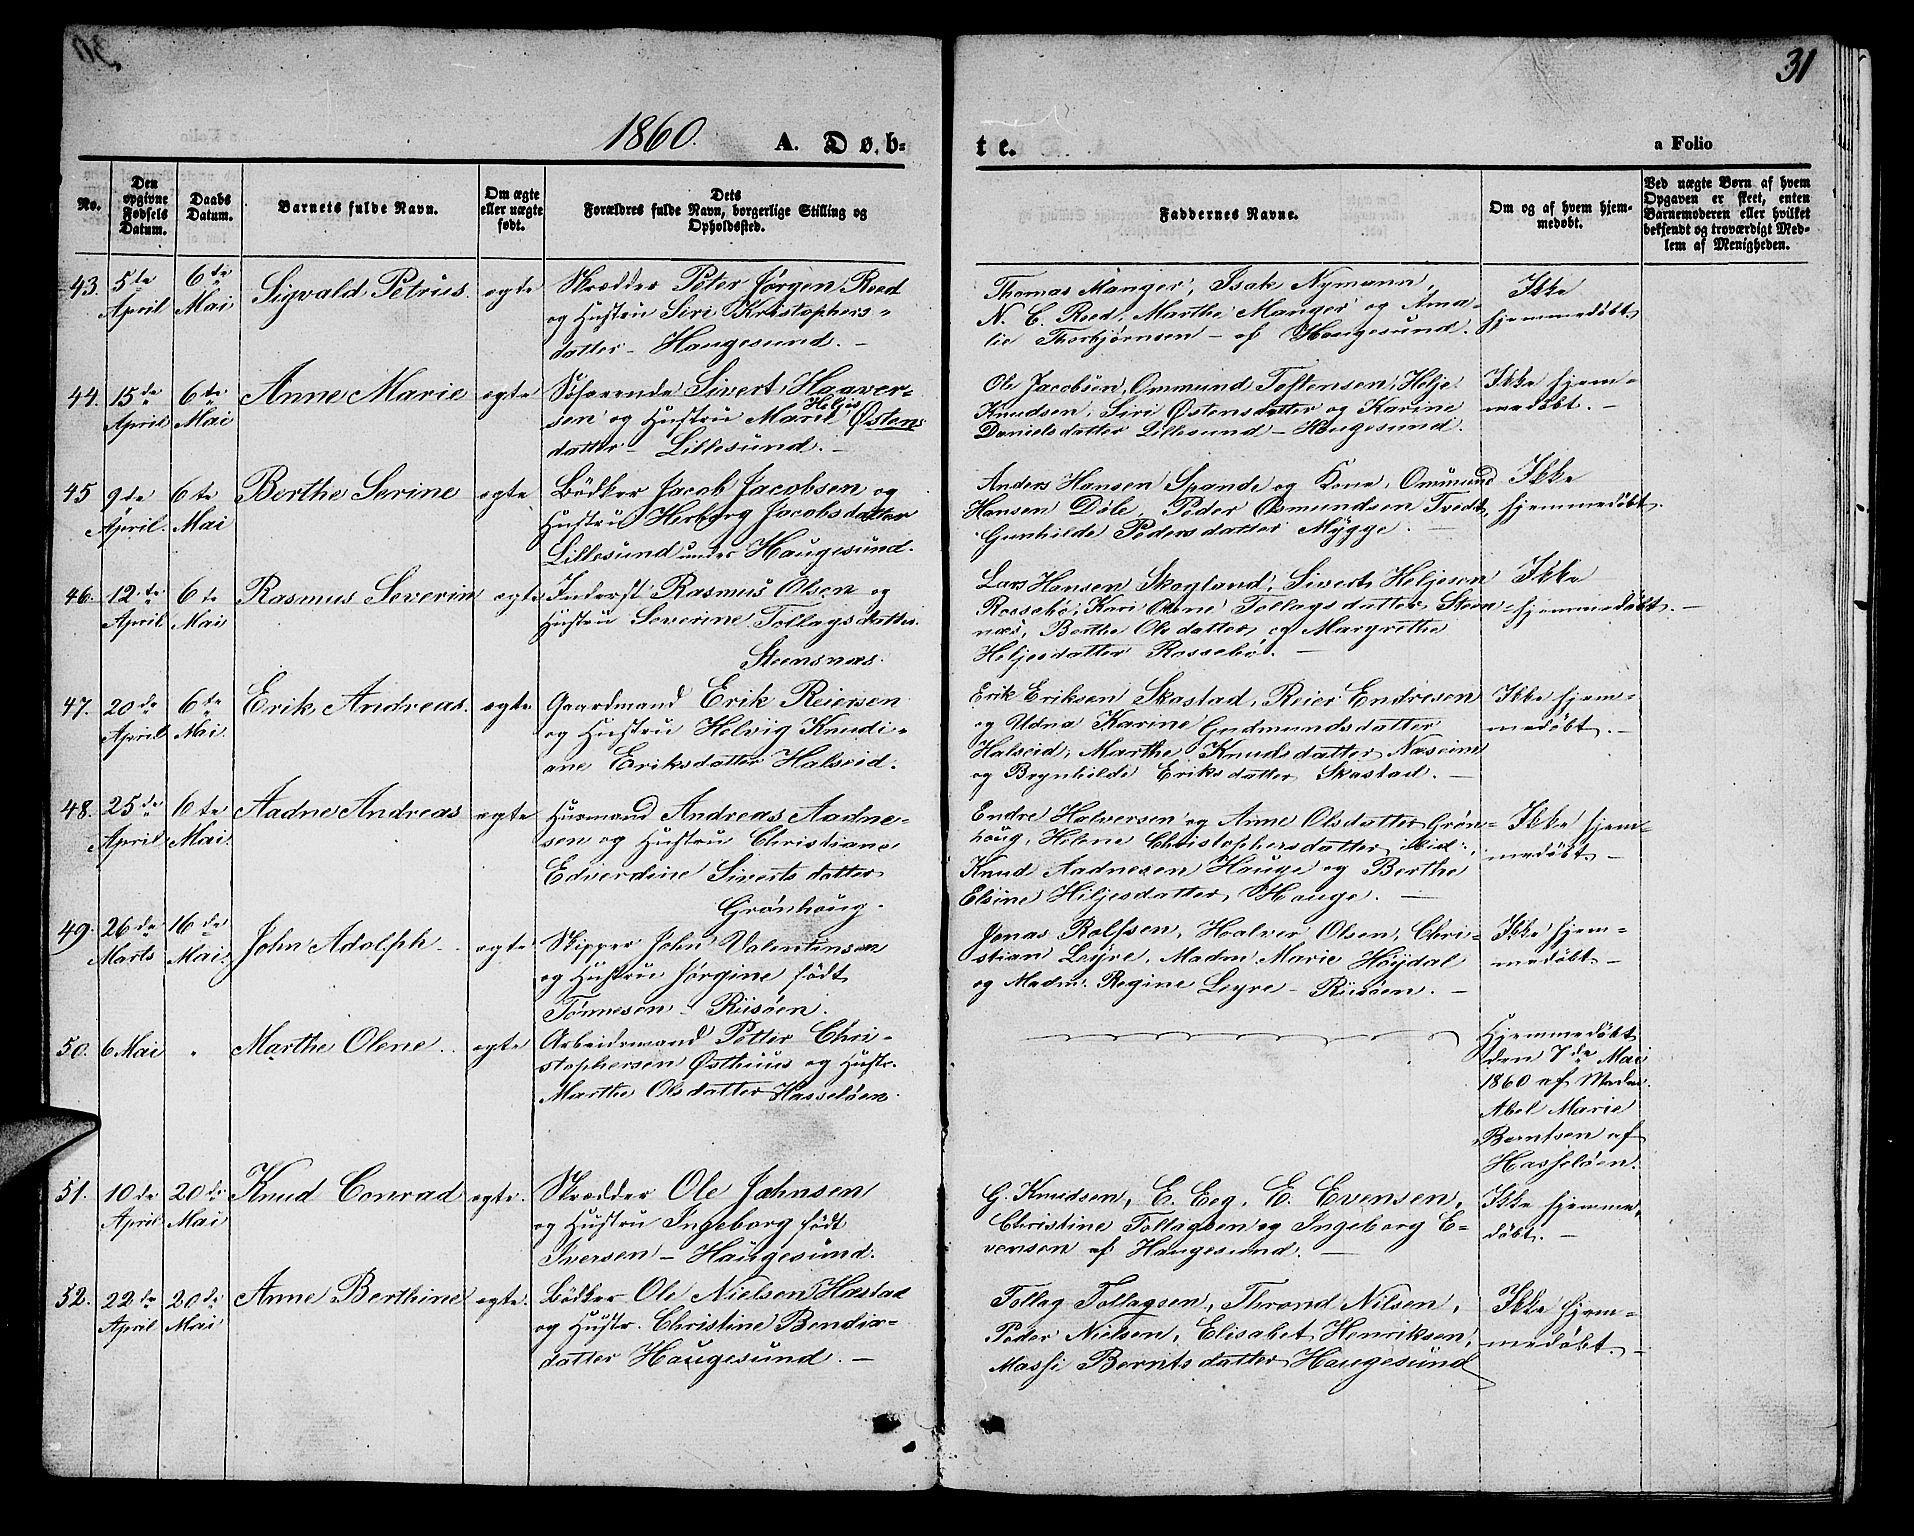 31
1860. A. Døb-
te.
a Folio
No.
Den opgivne Fødsels Datum.
Daabs Datum.
Barnets fulde Navn.
Om ægte eller uægte født.
Dets Forældres fulde Navn, borgerlige Stilling og Opholdssted.
Faddernes Navne.
Om og af hvem hjemmedøbt.
Ved uægte Børn af hvem Opgaven er skeet, enten Barnemoderen eller hvilket bekjendt og troværdigt Medlem af Menigheden.
43. 5te April 6te Mai Sigvald Petrius. ægte
Skrædder Peter Jørgen Roed
og Hustru Siri Kristophers-
datter - Haugesund. -
Thomas Manger, Isak Nymann,
N. C. Roed, Marthe Manger og Ama-
lie Thorbjørnsen - af Haugesund.
Ikke
hjemmedøbt.
44. 15de April 6te Mai Anne Marie ægte
Søfarende Sivert Haaver-
sen og Hustru Marit Heljes Østens
datter - Lillesund. -
Ole Jacobsen, Ommund Tostensen, Helje
Knudsen, Siri Østensdatter og Karine
Danielsdatter Lillesund - Haugesund.
Ikke hjem-
medøbt. -
45 9de April. 6te Mai Berthe Serine ægte
Bødker Jacob Jacobsen og
Hustru Herborg Jacobsdatter
Lillesund under Haugesund.
Anders Hansen Spande og Kone, Ommund
Hansen Døle, Peder Osmundsen Tvedt,
Gunhilde Pedersdatter Mygge. -
Ikke
hjemmedøbt.
46. 12te April 6te Mai Rasmus Severin ægte
Inderst Rasmus Olsen og
Hustru Severine Tollagsdatter
Steensnæs.
Lars Hansen Skogland, Sivert Heljesen
Rossebø, Kari Tollagsdatter Steen-
næs, Berthe Olsdatter og Margrethe
Heljesdatter Rossebø. -
Ikke
hjemmedøbt. -
47. 20de April 6te Mai. Erik Andreas. ægte
Gaardmand Erik Reiersen
og Hustru Helvig Knudi-
ane Eriksdatter Halseid.
Erik Eriksen Skastad, Reier Endresen
og Udna Karine Gudmundsdatter
Halseid, Marthe Knudsdatter Næseim
og Brynhilde Eriksdatter Skastad. -
Ikke hjem-
medøbt. -
48. 25de April. 6te Mai. Aadne Andreas ægte
Husmand Andreas Aadne-
sen og Hustru Christiane
Edverdine Sivertsdatter
Grønhoug.
Endre Halversen og Anne Olsdatter Grøn-
houg, Helene Christophersdatter ibid.,
Knud Aadnesen Hauge og Berthe
Elsine Hiljesdatter Hauge. -
Ikke hjem-
medøbt -
49. 26de Marts 16de Mai. John Adolph. ægte
Skipper John Valentinsen
og Hustru Jørgine født
Tønnesen - Risøen.
Jonas Rolfsen, Halver Olsen, Chri-
stian Leyre, Madm Marie Høydal
og Madm. Regine Leyre - Risøen. -
Ikke hjem-
medøbt -
50. 6 Mai " Marthe Olene.. ægte
Arbeidsmand Petter Chri-
stophersen Østhuus og Hustr.
Marthe Olsdatter Hasseløen.
Hjemmedøbt
den 7de Mai
1860 af Madm.
Abel Marie
Berntsen af
Hasseløen.
51. 10de April 20de Mai Knud Conrad ægte.
Skrædder Ole Jahnsen
og Hustru Ingeborg født
Iversen - Haugesund.
G. Knudsen, E. Eeg, E. Evensen,
Christine Tollagsen og Ingeborg E-
vensen af Haugesund. -
Ikke hjemme-
døbt. -
52. 22de April 20de Mai Anne Berthine ægte.
Bødker Ole Nielsen Hastad
og Hustr. Christine Bendix-
datter Haugesund. -
Tollag Tollagsen, Thrond Nilsen,
Peder Nielsen, Elisabet Henriksen,
Massi Berntsdatter Haugesund
Ikke hjem-
medøbt. -